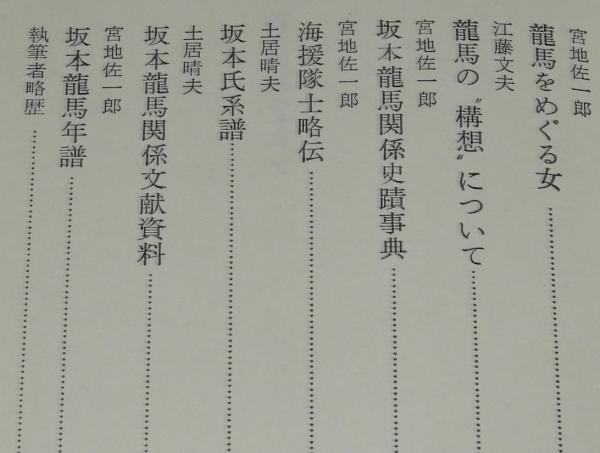 宮地佐一郎
龍馬をめぐる女
江藤文夫
龍馬の〝構想〟について
宮地佐一郎
坂本龍馬関係史蹟事典
宮地佐一郎
海援隊士略伝
土居晴夫
坂本氏系譜
土居晴夫
坂本龍馬関係文献資料
宮地佐一郎
坂本龍馬年譜
執筆者略歴